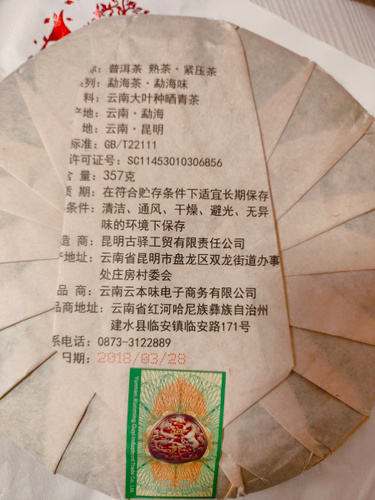 称：普洱茶 熟茶·紧压茶
系列：勐海茶·勐海味
料：云南大叶种晒青茶
产地：云南·勐海
地：云南·昆明
标准：GB/T22111
许可证号：SC11453010306856
含量：357克
质期：在符合贮存条件下适宜长期保存
条件：清洁、通风、干燥、避光、无异
味的环境下保存
造商：昆明古驿工贸有限责任公司
产地址：云南省昆明市盘龙区双龙街道办事
处庄房村委会
品商：云南云本味电子商务有限公司
品商地址：云南省红河哈尼族彝族自治州
建水县临安镇临安路171号
系电话：0873-3122889
日期：2018/03/28
Yunnan Kunming Guyi Industry&Trade Co.,Ltd.